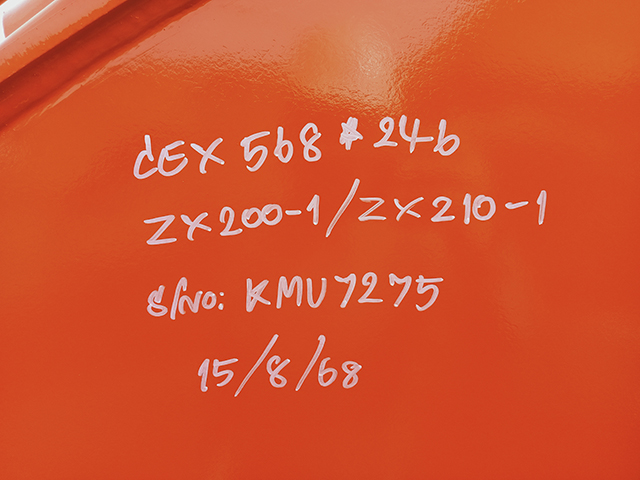 CEX 568 * 246
ZX200-1/ZX210-1
S/No: KMU7275
15/8/68